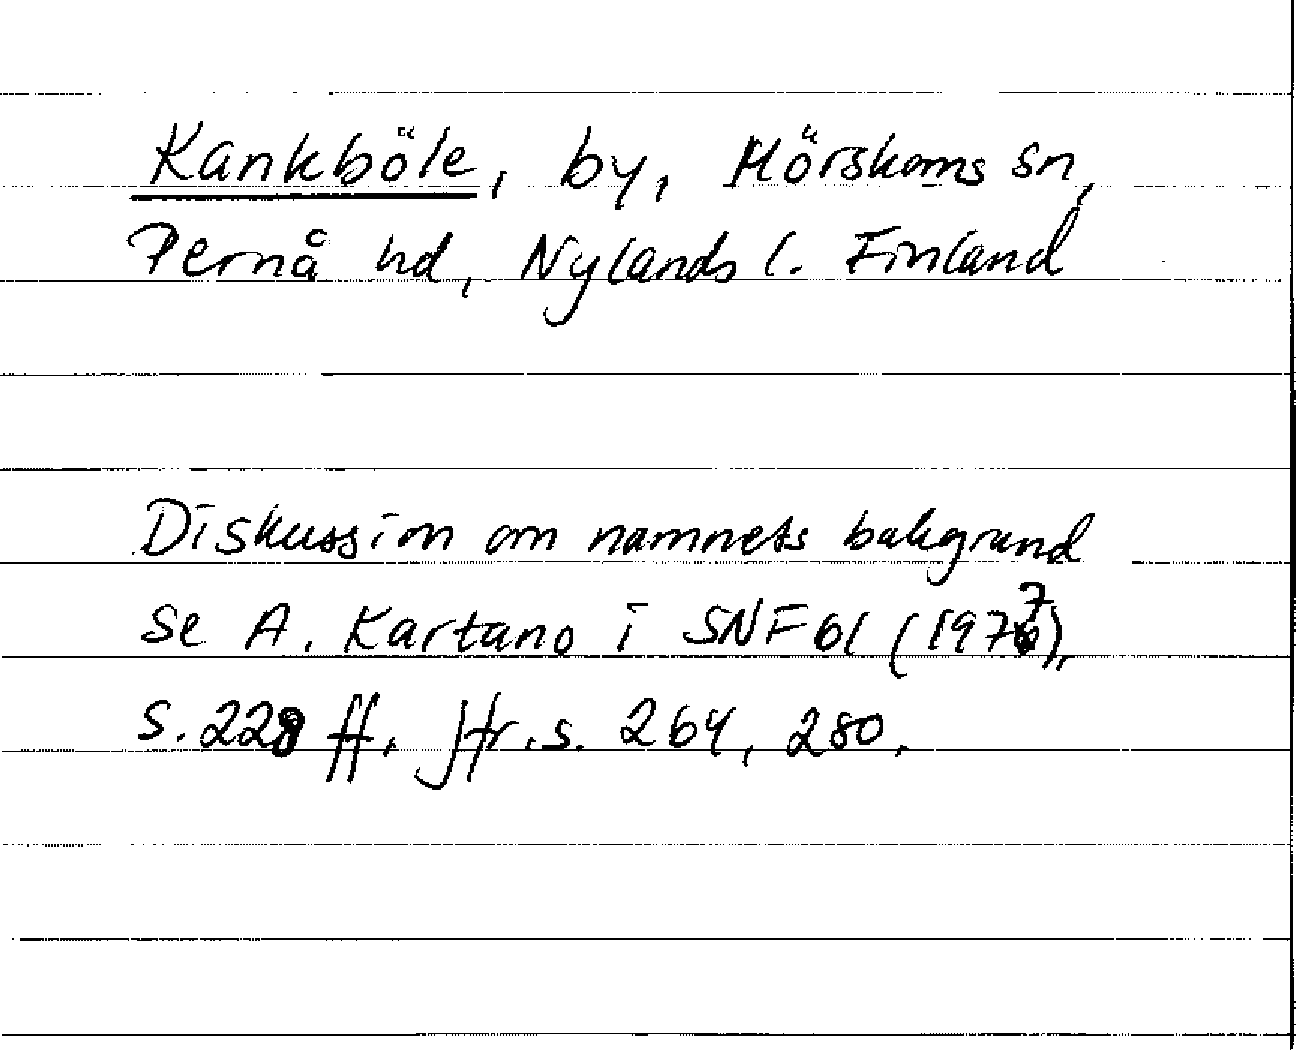 Kankböle, by, Mörskoms sn,
Pernå hd, Nylands l. Finland
Diskussion om namnets bakgrund
se A. Kartano i SNF 61 (1977),
s. 228 ff. Jfr. s. 264, 280.